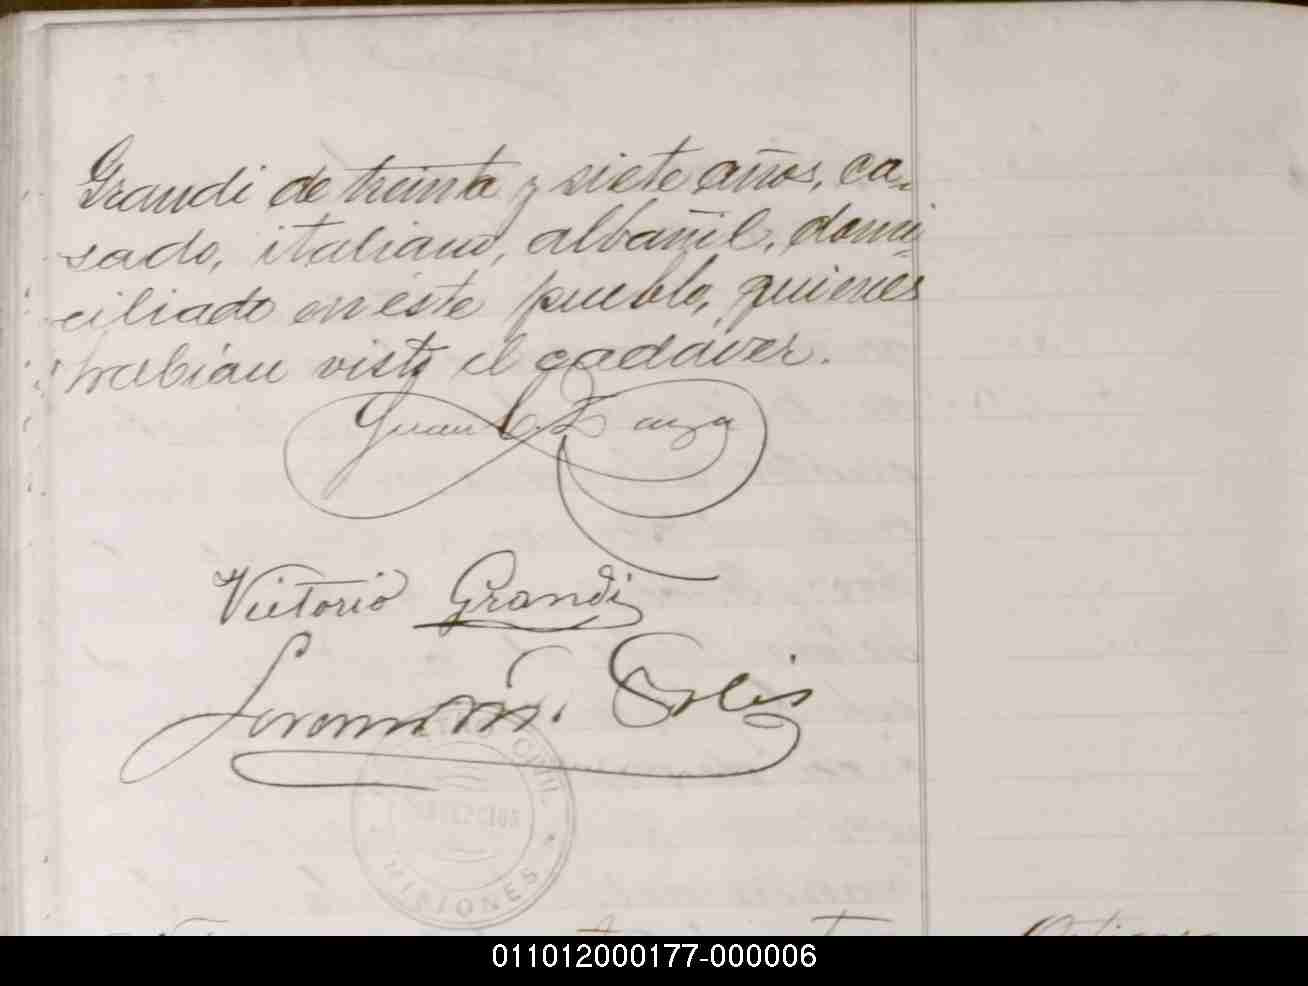 Grandi de treinta y siete años, ca-
sado, italiano, albañil, domi-
ciliado en este pueblo, quienes
habían visto el cadáver.
Juan
Victorio Grandi
Solis
CIVIL
MISIONES
011012000177-000006